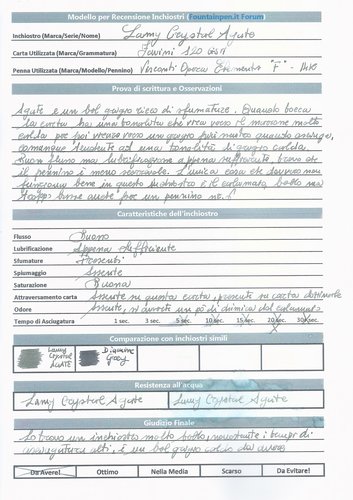 Modello per Recensione Inchiostri (Fountainpen.it Forum)
Inchiostro (Marca/Serie/Nome) Lamy Crystal Agate
Carta Utilizzata (Marca/Grammatura) Favini 120 GSM
Penna Utilizzata (Marca/Modello/Pennino) Visconti Opera Elements "F" - 14K
Prova di scrittura e Osservazioni
Agate è un bel grigio ricco di sfumature. Quando tocca
la carta ha una tonalità che vira verso il marrone molto
calda per poi virare verso un grigio più neutro quando asciuga,
comunque tendente ad una tonalità di grigio calda.
Buon flusso ma lubrificazione appena sufficiente, tanto che
il pennino è meno scorrevole. L'unica cosa che
bene in questo inchiostro è il calamaio bello ma
troppo per un pennino
Caratteristiche dell'inchiostro
Flusso Buono
Lubrificazione Appena sufficiente
Sfumature Presenti
Spiumaggio Assente
Saturazione Buona
Attraversamento carta Assente su questa carta, presente su carta
Odore Assente, si avverte un pò di chimica dal calamaio
Tempo di Asciugatura 1 sec. 3 sec. 5 sec. 10 sec. 15 sec. 20 sec. 30 sec.
Comparazione con inchiostri simili
Lamy Crystal AGATE Diamine Grey
Resistenza all'acqua
Lamy Crystal Agate Lamy Crystal Agate
Giudizio Finale
Lo trovo un inchiostro molto bello, nonostante i tempi di
asciugatura alti, è un bel grigio caldo da avere
Da Avere! Ottimo Nella Media Scarso Da Evitare!